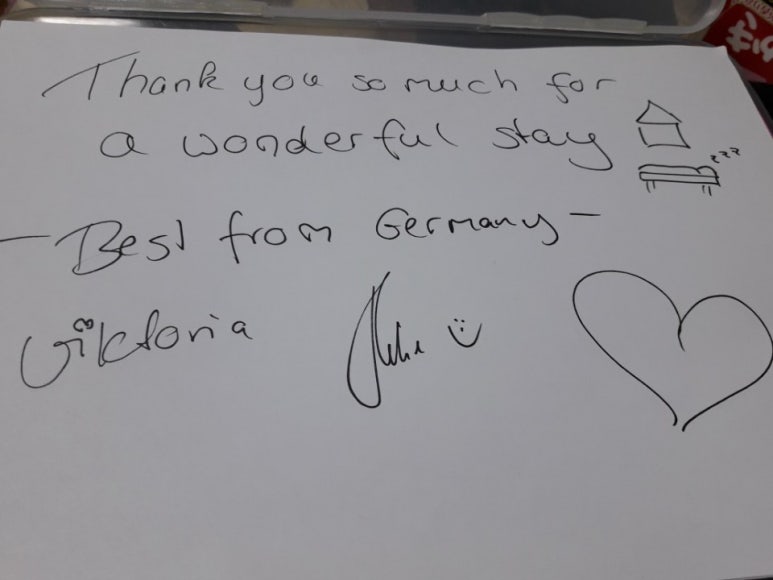 Thank you so much for
a wonderful stay
zzz
- Best from Germany -
Viktoria